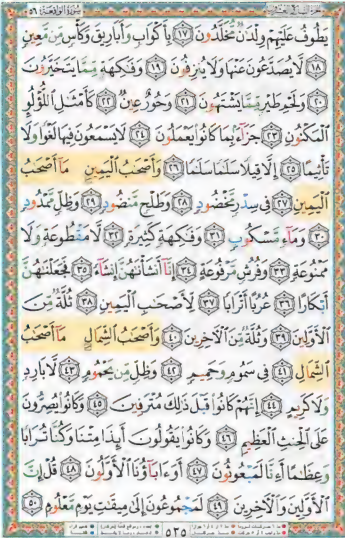 سُورَةُ الوَاقِعَةِ ٥٦
يَطُوفُ عَلَيْهِمْ وِلْدَٰنٌ مُّخَلَّدُونَ ١٧ بِأَكْوَابٍ وَأَبَارِيقَ وَكَأْسٍ مِّن مَّعِينٍ
١٨ لَّا يُصَدَّعُونَ عَنْهَا وَلَا يُنزِفُونَ ١٩ وَفَٰكِهَةٍ مِّمَّا يَتَخَيَّرُونَ
٢٠ وَلَحْمِ طَيْرٍ مِّمَّا يَشْتَهُونَ ٢١ وَحُورٌ عِينٌ ٢٢ كَأَمْثَٰلِ اللُّؤْلُؤِ
الْمَكْنُونِ ٢٣ جَزَآءًۢ بِمَا كَانُوا يَعْمَلُونَ ٢٤ لَا يَسْمَعُونَ فِيهَا لَغْوًا وَلَا
تَأْثِيمًا ٢٥ إِلَّا قِيلًا سَلَٰمًا سَلَٰمًا ٢٦ وَأَصْحَٰبُ الْيَمِينِ مَآ أَصْحَٰبُ
الْيَمِينِ ٢٧ فِى سِدْرٍ مَّخْضُودٍ ٢٨ وَطَلْحٍ مَّنضُودٍ ٢٩ وَظِلٍّ مَّمْدُودٍ
٣٠ وَمَآءٍ مَّسْكُوبٍ ٣١ وَفَٰكِهَةٍ كَثِيرَةٍ ٣٢ لَّا مَقْطُوعَةٍ وَلَا
مَمْنُوعَةٍ ٣٣ وَفُرُشٍ مَّرْفُوعَةٍ ٣٤ إِنَّآ أَنشَأْنَٰهُنَّ إِنشَآءً ٣٥ فَجَعَلْنَٰهُنَّ
أَبْكَارًا ٣٦ عُرُبًا أَتْرَابًا ٣٧ لِّأَصْحَٰبِ الْيَمِينِ ٣٨ ثُلَّةٌ مِّنَ
الْأَوَّلِينَ ٣٩ وَثُلَّةٌ مِّنَ الْآخِرِينَ ٤٠ وَأَصْحَٰبُ الشِّمَالِ مَآ أَصْحَٰبُ
الشِّمَالِ ٤١ فِى سَمُومٍ وَحَمِيمٍ ٤٢ وَظِلٍّ مِّن يَحْمُومٍ ٤٣ لَّا بَارِدٍ
وَلَا كَرِيمٍ ٤٤ إِنَّهُمْ كَانُوا قَبْلَ ذَٰلِكَ مُتْرَفِينَ ٤٥ وَكَانُوا يُصِرُّونَ
عَلَى الْحِنثِ الْعَظِيمِ ٤٦ وَكَانُوا يَقُولُونَ أَئِذَا مِتْنَا وَكُنَّا تُرَابًا
وَعِظَٰمًا أَءِنَّا لَمَبْعُوثُونَ ٤٧ أَوَءَابَآؤُنَا الْأَوَّلُونَ ٤٨ قُلْ إِنَّ
الْأَوَّلِينَ وَالْآخِرِينَ ٤٩ لَمَجْمُوعُونَ إِلَىٰ مِيقَٰتِ يَوْمٍ مَّعْلُومٍ ٥٠
٥٣٥